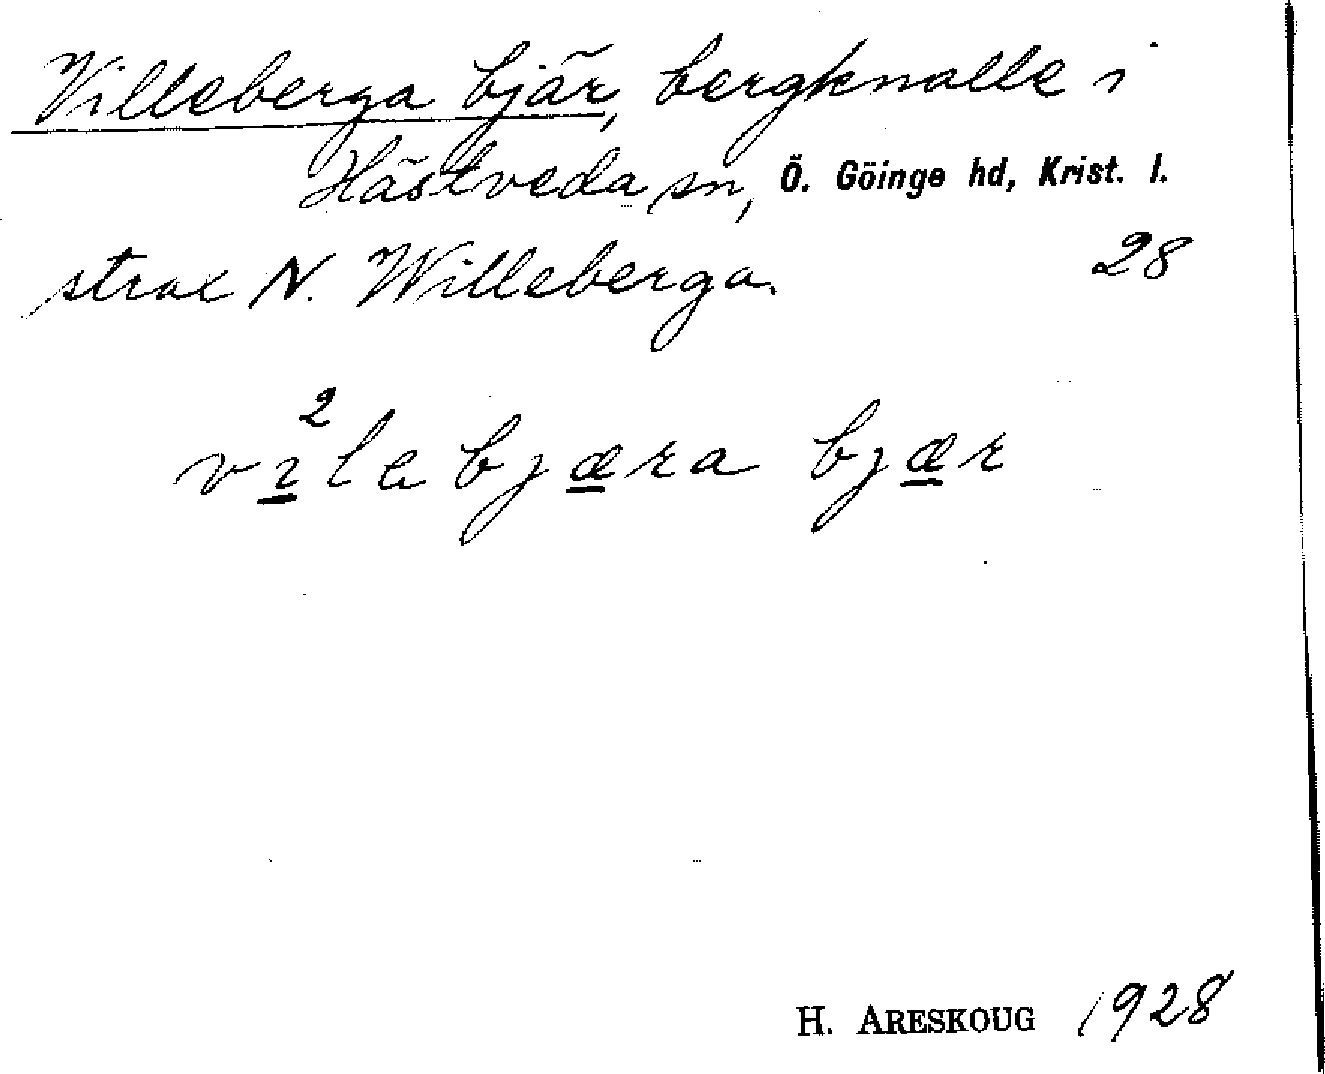 Villeberga bjär, bergknalle i
Hästveda sn, Ö. Göinge hd, Krist. l.
strax N. Willeberga. 28
vı²lebjæra bjær
H. ARESKOUG 1928